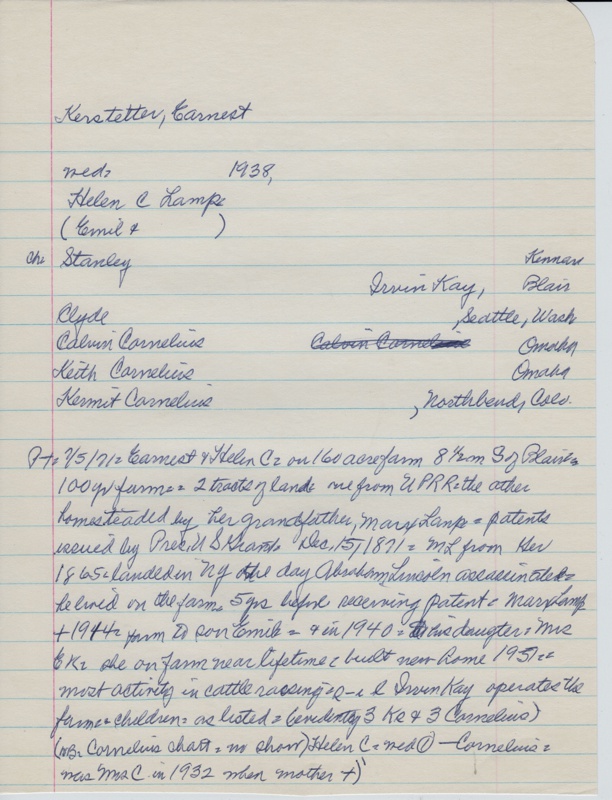 Kerstetter, Earnest
med= 1938,
Helen C Lamp
(Emil & )
Ch: Stanley Kennar
Irvin Kay, Blair
Clyde ,Seattle, Wash
Calvin Cornelius Calvin Cornelius Omaha
Keith Cornelius Omaha
Kermit Cornelius , Northbend, Colo.
Pt= 7/5/71= Earnest & Helen C= on 160 acre farm 8½ m S of Blair=
100 yr farm= = 2 tracts of land= one from UPRR= the other
homesteaded by her grandfather, Marx Lamp = patents
issued by Pres. U S Grant= Dec, 15, 1871 = ML from Ger
1865= landed in NY the day Abraham Lincoln assassinated=
he lived on the farm 5 yrs before receiving patent= Marx Lamp
+ 1914= farm to son Emil= = & in 1940 = to his daugter= Mrs
EK= she on farm near lifetime (built new home 1951= =
most activity in cattle raising= Irvin Kay operates the
farm= children= as listed = (evidently 3 Ks & 3 Cornelius)
(NB= Cornelius chart = no show) Helen C= med ① - Cornelius=
was Mrs C. in 1932 when mother +)